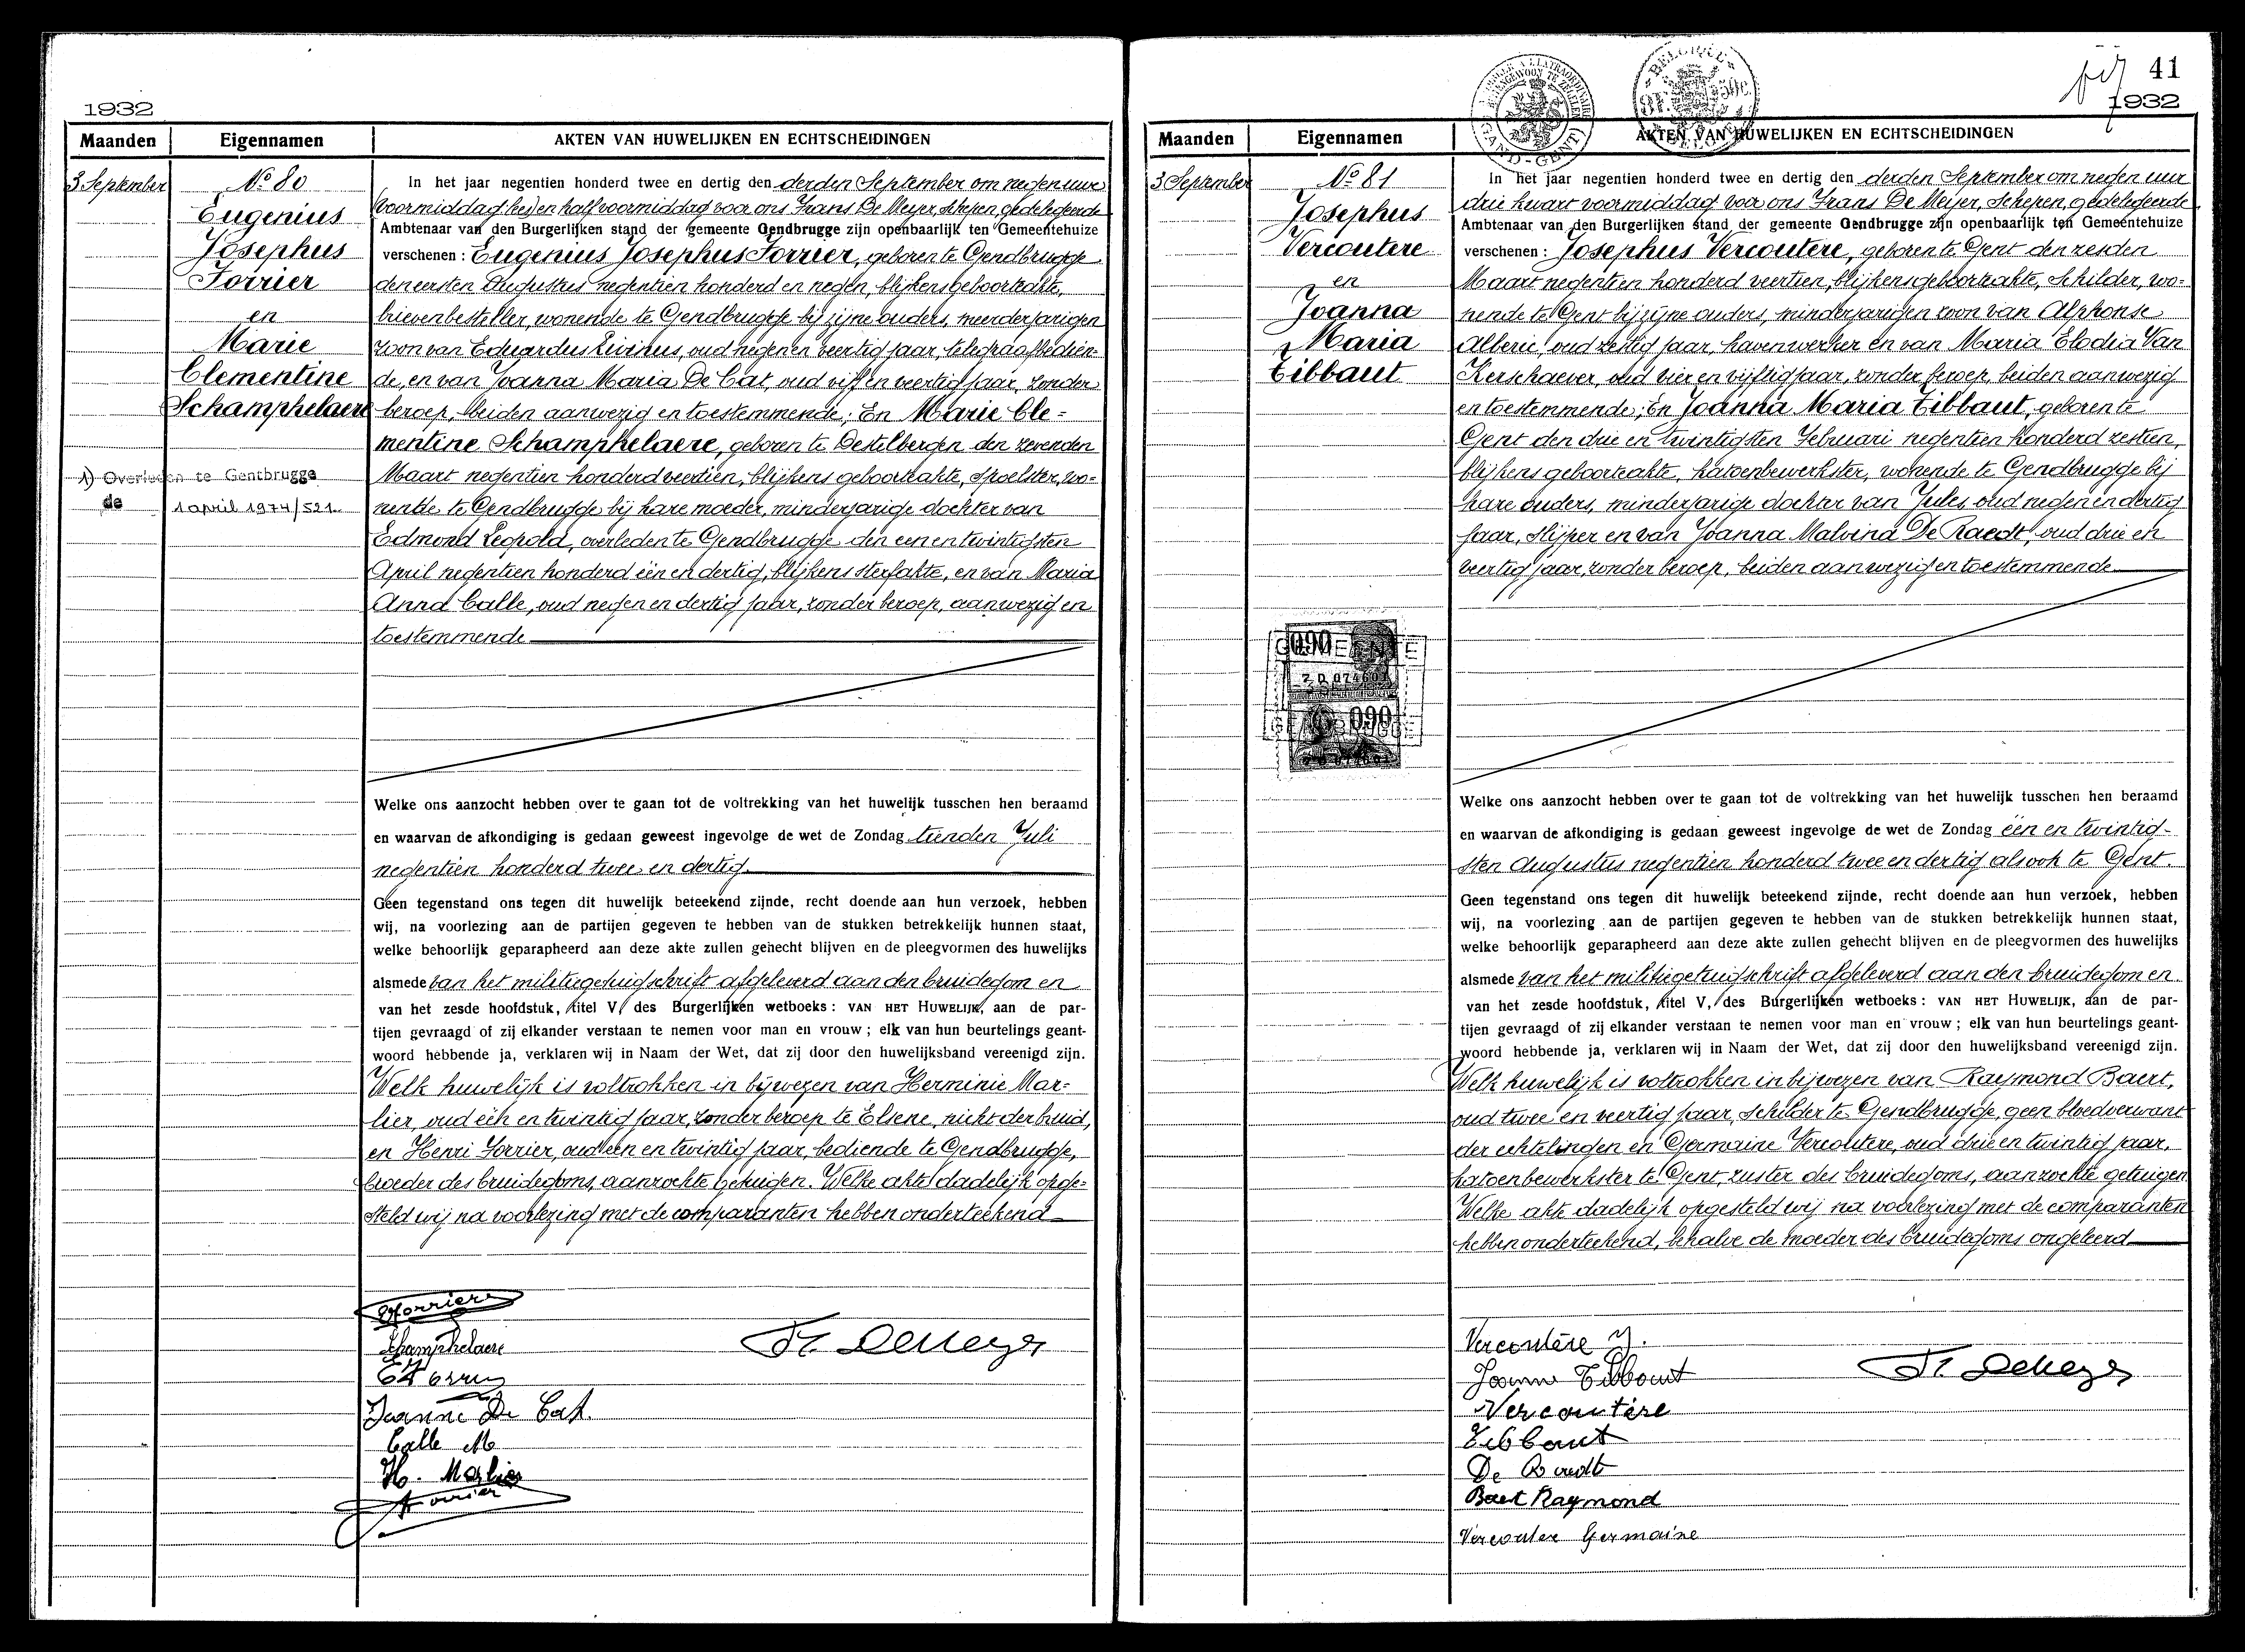 1932
Maanden
Eigennamen
AKTEN VAN HUWELIJKEN EN ECHTSCHEIDINGEN
3 September
Nº 80
Eugenius
Josephus
Forrier
en
Marie
Clementine
Schamphelaere
1) Overleden te Gentbrugge
de 1 april 1974/521.
In het jaar negentien honderd twee en dertig den derden September om negen ure
voormiddag en half voormiddag voor ons Frans De Meyer, schepen, gedelegeerde
Ambtenaar van den Burgerlijken stand der gemeente Gendbrugge zijn openbaarlijk ten Gemeentehuize
verschenen : Eugenius Josephus Forrier, geboren te Gendbrugge
den eersten Augustus negentien honderd en negen, blijkens geboorteakte,
brievenbesteller, wonende te Gendbrugge bij zijne ouders, meerderjarigen
zoon van Eduardus Livinus, oud negen en veertig jaar, telegraafbedien-
de, en van Joanna Maria De Cat, oud vijf en veertig jaar, zonder
beroep, beiden aanwezig en toestemmende; En Marie Cle=
mentine Schamphelaere, geboren te Destelbergen den zevenden
Maart negentien honderd veertien, blijkens geboorteakte, spoelster, wo=
nende te Gendbrugge bij hare moeder, minderjarige dochter van
Edmond Leopold, overleden te Gendbrugge den een en twintigsten
April negentien honderd één en dertig, blijkens sterfakte, en van Maria
Anna Calle, oud negen en dertig jaar, zonder beroep, aanwezig en
toestemmende
Welke ons aanzocht hebben over te gaan tot de voltrekking van het huwelijk tusschen hen beraamd
en waarvan de afkondiging is gedaan geweest ingevolge de wet de Zondag tienden Juli
negentien honderd twee en dertig.
Geen tegenstand ons tegen dit huwelijk beteekend zijnde, recht doende aan hun verzoek, hebben
wij, na voorlezing aan de partijen gegeven te hebben van de stukken betrekkelijk hunnen staat,
welke behoorlijk geparapheerd aan deze akte zullen gehecht blijven en de pleegvormen des huwelijks
alsmede van het militiegetuigschrift afgeleverd aan den bruidegom en
van het zesde hoofdstuk, titel V, des Burgerlijken wetboeks : VAN HET HUWELIJK, aan de par-
tijen gevraagd of zij elkander verstaan te nemen voor man en vrouw ; elk van hun beurtelings geant-
woord hebbende ja, verklaren wij in Naam der Wet, dat zij door den huwelijksband vereenigd zijn.
Welk huwelijk is voltrokken in bijwezen van Herminie Mar=
lier, oud één en twintig jaar, zonder beroep te Elsene, nicht der bruid,
en Henri Forrier, oud één en twintig jaar, bediende te Gendbrugge,
broeder des bruidegoms, aanzochte getuigen. Welke akte dadelijk opge=
steld wij na voorlezing met de comparanten hebben onderteekend
Forrier
Schamphelaere
Jeanne De Cat.
Calle M
H. Marlier
Forrier
Fr. De Meyer
BELGIQUE
GAND - GENT
41
1932
Maanden
Eigennamen
AKTEN VAN HUWELIJKEN EN ECHTSCHEIDINGEN
3 September
Nº 81
Josephus
Vercoutere
en
Joanna
Maria
Tibbaut
In het jaar negentien honderd twee en dertig den derden September om negen uur
drie kwart voormiddag voor ons Frans De Meijer, Schepen, gedelegeerde
Ambtenaar van den Burgerlijken stand der gemeente Gendbrugge zijn openbaarlijk ten Gemeentehuize
verschenen : Josephus Vercoutere, geboren te Gent den zesden
Maart negentien honderd veertien, blijkens geboorteakte, Schilder, wo=
nende te Gent bij zijne ouders, minderjarigen zoon van Alphonse
Alberic, oud zestig jaar, havenwerker en van Maria Elodia Van
Kerschaever, oud vier en vijftig jaar, zonder beroep, beiden aanwezig
en toestemmende; En Joanna Maria Tibbaut, geboren te
Gent den drie en twintigsten Februari negentien honderd zestien,
blijkens geboorteakte, katoenbewerkster, wonende te Gendbrugge bij
hare ouders, minderjarige dochter van Jules, oud negen en dertig
jaar, slijper en van Joanna Malvina De Raedt, oud drie en
veertig jaar, zonder beroep, beiden aanwezig en toestemmende
Welke ons aanzocht hebben over te gaan tot de voltrekking van het huwelijk tusschen hen beraamd
en waarvan de afkondiging is gedaan geweest ingevolge de wet de Zondag één en twintig-
sten Augustus negentien honderd twee en dertig alsook te Gent.
Geen tegenstand ons tegen dit huwelijk beteekend zijnde, recht doende aan hun verzoek, hebben
wij, na voorlezing aan de partijen gegeven te hebben van de stukken betrekkelijk hunnen staat,
welke behoorlijk geparapheerd aan deze akte zullen gehecht blijven en de pleegvormen des huwelijks
alsmede van het militiegetuigschrift afgeleverd aan den bruidegom en
van het zesde hoofdstuk, titel V, des Burgerlijken wetboeks : VAN HET HUWELIJK, aan de par-
tijen gevraagd of zij elkander verstaan te nemen voor man en vrouw ; elk van hun beurtelings geant-
woord hebbende ja, verklaren wij in Naam der Wet, dat zij door den huwelijksband vereenigd zijn.
Welk huwelijk is voltrokken in bijwezen van Raymond Baert,
oud twee en veertig jaar, schilder te Gendbrugge, geen bloedverwant
der echtelingen en Germaine Vercoutere, oud drie en twintig jaar,
katoenbewerkster te Gent, zuster des bruidegoms, aanzochte getuigen.
Welke akte dadelijk opgesteld wij na voorlezing met de comparanten
hebben onderteekend, behalve de moeder des bruidegoms ongeleerd
Vercoutère J.
Joanna Tibbaut
Vercoutère
Tibbaut
De Raedt
Baert Raymond
Vercouter Germaine
Fr. De Meyer